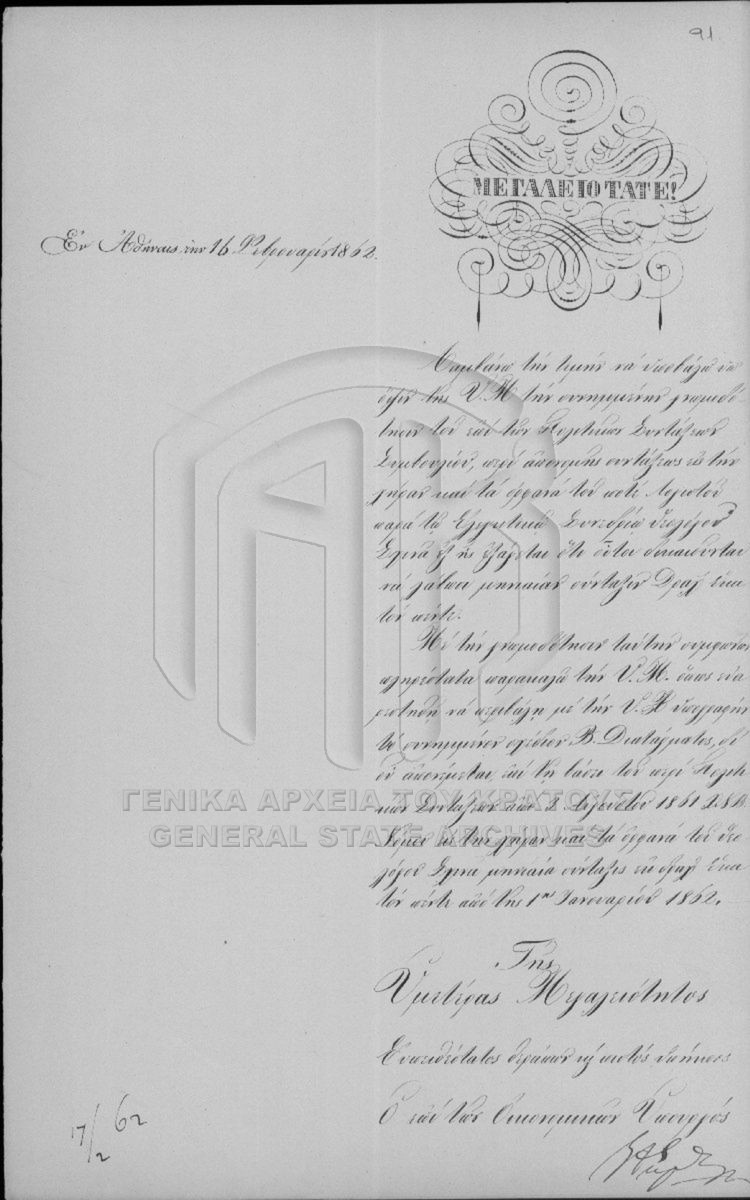 91
ΜΕΓΑΛΕΙΟΤΑΤΕ!
Ἐν Ἀθήναις τὴν 16 Φεβρουαρίου 1862.
Λαμβάνω τὴν τιμὴν νὰ ὑποβάλω ὑπ'
ὄψιν τῆς Υ.Μ. τὴν συνημμένην γνωμοδό-
τησιν τοῦ ἐπὶ τῶν Πολιτικῶν Συντάξεων
Συμβουλίου, περὶ ἀπονομῆς συντάξεως εἰς τὴν
χήραν καὶ τὰ ὀρφανὰ τοῦ ποτὲ Λογιστοῦ
παρὰ τῷ Ἐλεγκτικῷ Συνεδρίῳ Θεολόγου
ἐξ ἧς ἐξάγεται ὅτι οὗτοι δικαιοῦνται
νὰ λάβωσι μηνιαίαν σύνταξιν Δραχ. ἑκα-
τὸν πέντε.
Μὲ τὴν γνωμοδότησιν ταύτην συμφωνῶν
πληρέστατα παρακαλῶ τὴν Υ.Μ. ὅπως εὐα-
ρεστηθῇ νὰ περιβάλῃ μὲ τὴν Υ. ὑπογραφὴν
τὸ συνημμένον σχέδιον Β. Διατάγματος, δι'
οὗ ἀπονέμεται, ἐπὶ τῇ βάσει τοῦ περὶ Πολιτι-
κῶν Συντάξεων ἀπὸ 2 Αὐγούστου 1861
Νόμου εἰς τὴν χήραν καὶ τὰ ὀρφανὰ τοῦ Θεο-
λόγου μηνιαία σύνταξις ἐκ δραχ. ἑκα-
τὸν πέντε ἀπὸ τῆς 1ης Ἰανουαρίου 1862.
Τῆς
Ὑμετέρας Μεγαλειότητος
Εὐπειθέστατος θεράπων καὶ πιστὸς ὑπήκοος
Ὁ ἐπὶ τῶν Οἰκονομικῶν Ὑπουργὸς
17/2 62
ΓΕΝΙΚΑ ΑΡΧΕΙΑ ΤΟΥ ΚΡΑΤΟΥΣ
GENERAL STATE ARCHIVES